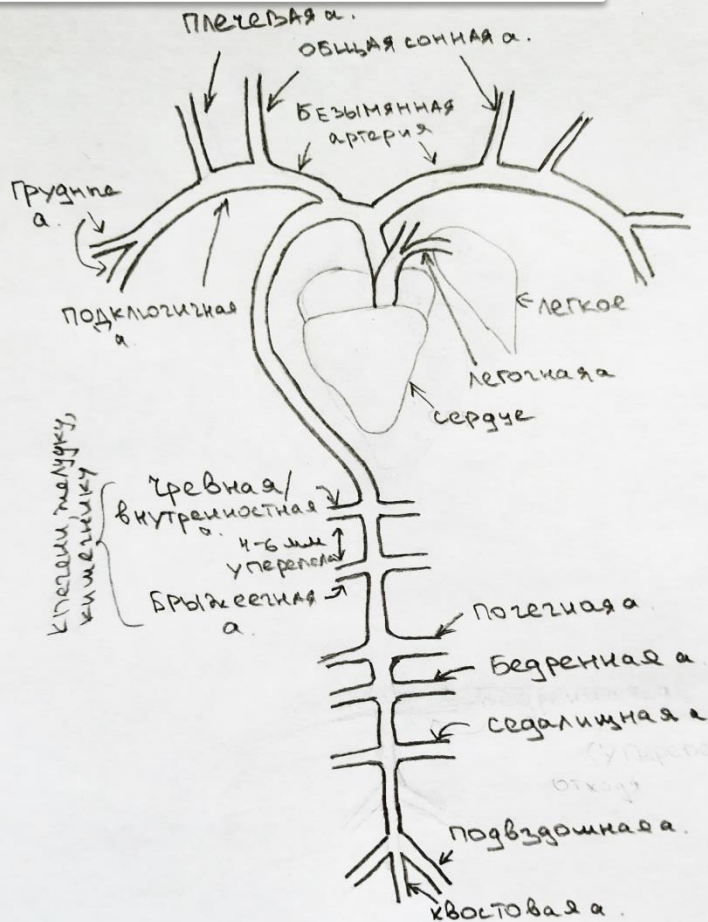 ПЛЕЧЕВАЯ а.
ОБЩАЯ СОННАЯ а.
БЕЗЫМЯННАЯ
артерия
ГРУДНЫЕ
а.
ПОДКЛЮЧИЧНАЯ
а.
ЛЕГКОЕ
ЛЕГОЧНАЯ а
сердце
К печени, желудку,
кишечнику
ЧРЕВНАЯ/
ВНУТРЕННОСТНАЯ
а.
4-6 мм
у перепела
БРЫЖЕЕЧНАЯ
а.
ПОЧЕЧНАЯ а
БЕДРЕННАЯ а.
СЕДАЛИЩНАЯ а
ПОДВЗДОШНАЯ а.
КВОСТОВАЯ а.